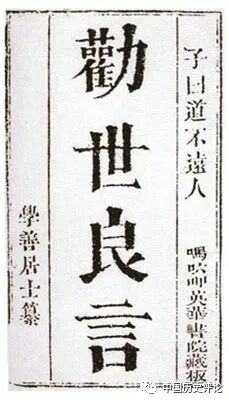 子曰道不遠人
嗎呷英華書院藏板
勸世良言
學善居士纂
中国历史评论